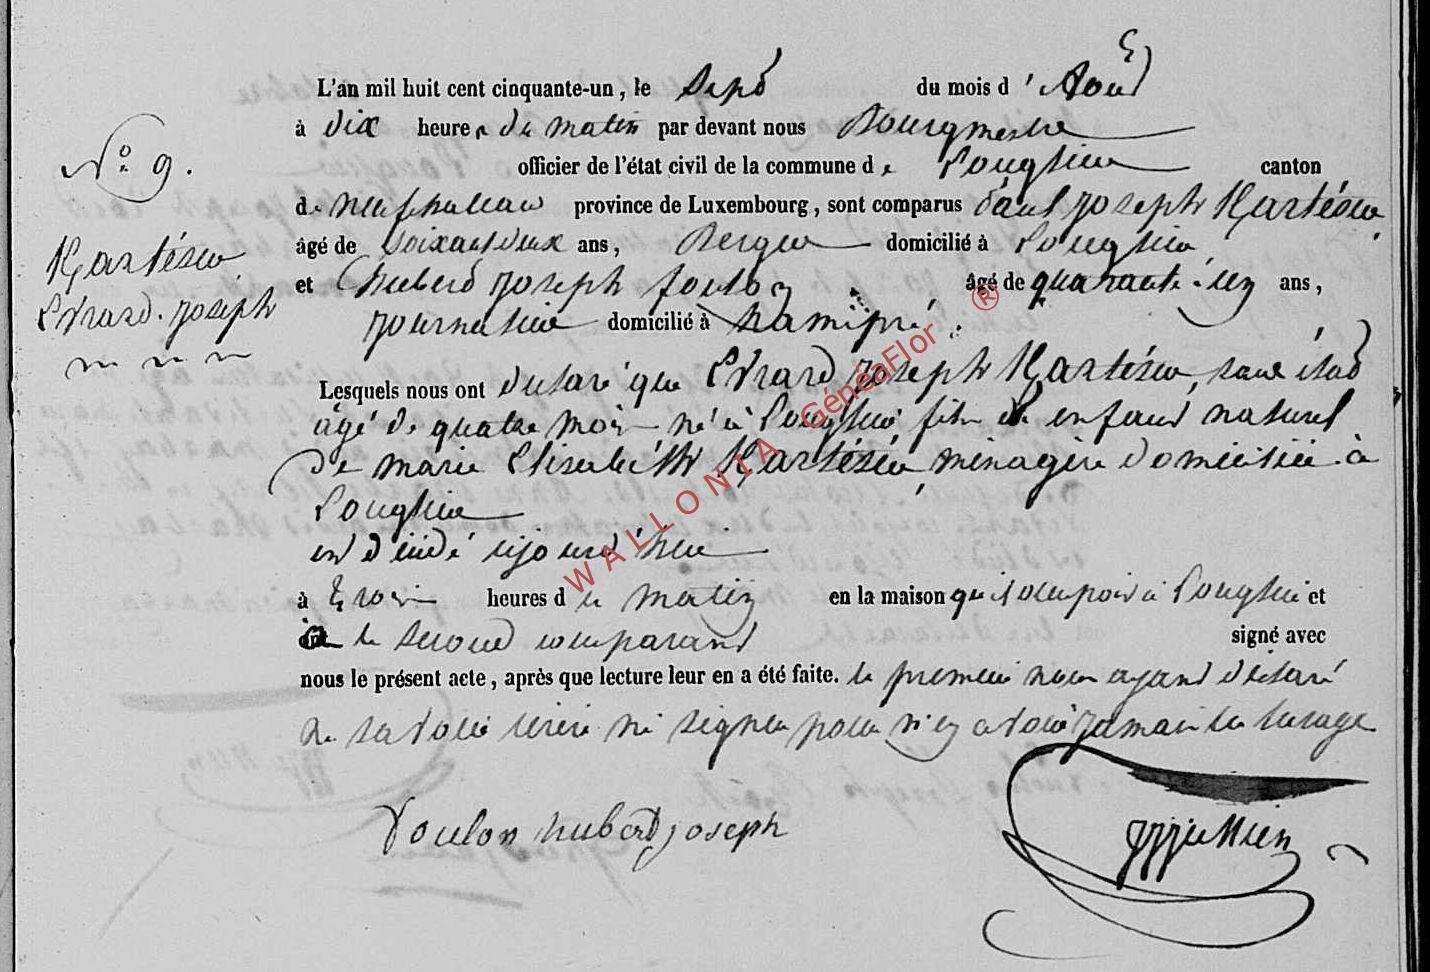 L'an mil huit cent cinquante-un, le sept du mois d'Août
à dix heures du matin par devant nous Bourgmestre
officier de l'état civil de la commune de Longlier canton
N° 9.
de neufchateau province de Luxembourg, sont comparus Paul joseph Hartésin
Hartésin
Evrard. joseph
âgé de soixantdeux ans, Berger domicilié à Longlier
et hubert joseph foulon âgé de quarante-un ans,
journalier domicilié à hamipré.
Lesquels nous ont declaré que Evrard joseph Hartésin, sans état
âgé de quatre mois né à Longlier fils enfant naturel
de marie Elisabeth Hartésin, ménagère domiciliée à
Longlier
est dédé aujourd'hui
à trois heures du matin en la maison qu'il occupoit à Longlier et
le second comparant signé avec
nous le présent acte, après que lecture leur en a été faite. le premier nous ayant déclaré
ne savoir écrire ni signer pour n'en avoir jamais eu l'usage
foulon hubert joseph
WALLONIA GénéaFlor ®